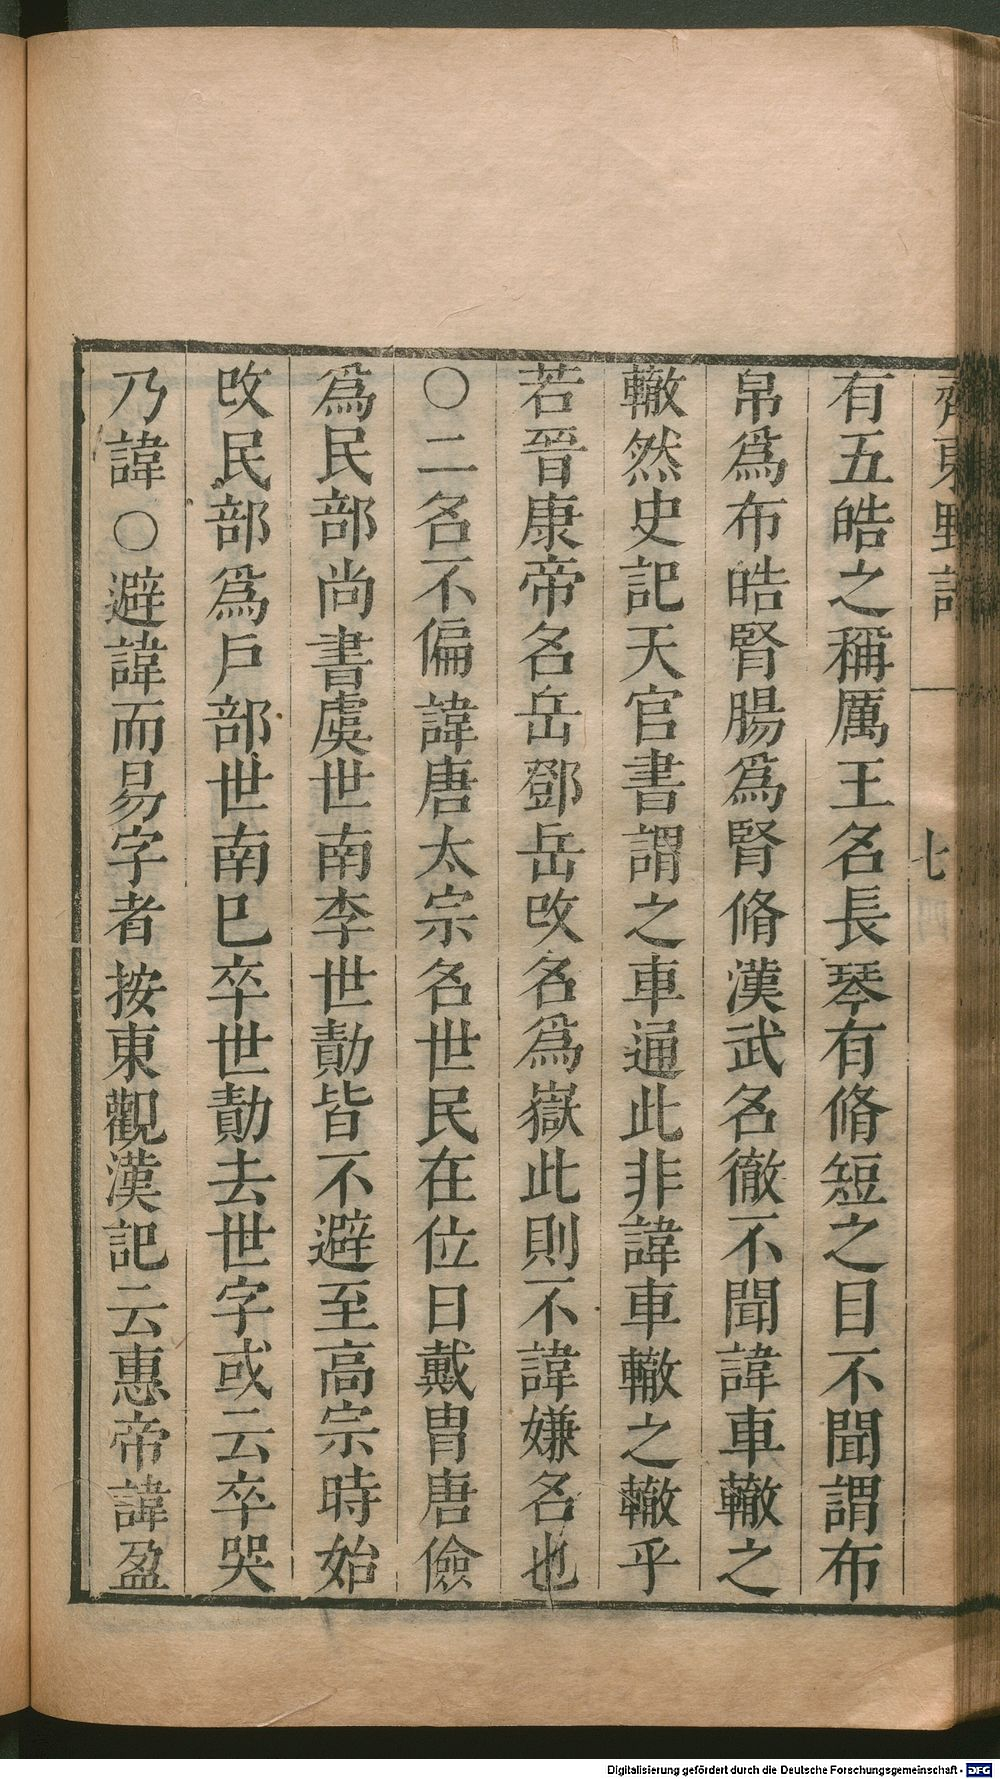 齊東野語
七
有五皓之稱厲王名長琴有脩短之目不聞謂布
帛爲布皓腎腸爲腎脩漢武名徹不聞諱車轍之
轍然史記天官書謂之車通此非諱車轍之轍乎
若晉康帝名岳鄧岳改名爲嶽此則不諱嫌名也
○二名不偏諱唐太宗名世民在位日戴胄唐儉
爲民部尚書虞世南李世勣皆不避至高宗時始
改民部爲戶部世南巳卒世勣去世字或云卒哭
乃諱○避諱而易字者按東觀漢記云惠帝諱盈
Digitalisierung gefördert durch die Deutsche Forschungsgemeinschaft - DFG